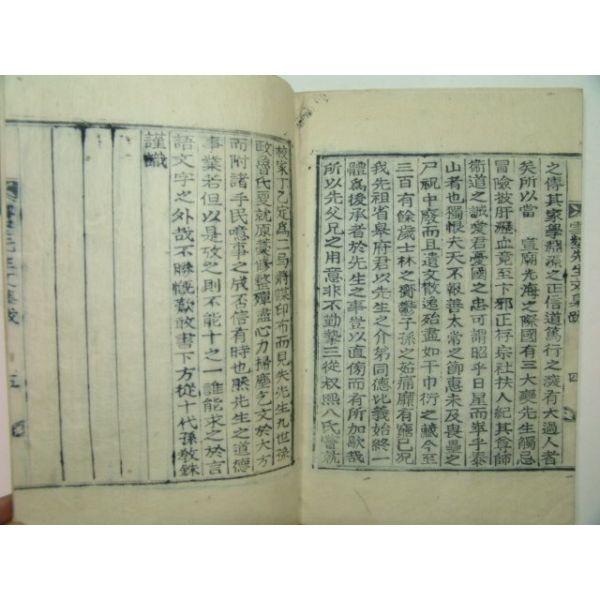 之傳其家學淵源之正信道篤行之
有大過人者
矣所以當 宣廟光海之際國有三大變先生觸忌
冒險披肝瀝血竟至卞邪正存宗社扶人紀其尊師
衛道之誠愛君憂國之忠可謂昭乎日星而崒乎泰
山者也獨恨夫天不報善太常之節惠未及畏壘之
尸祝中廢而且遺文散逸殆盡如干巾衍之藏今至
三百有餘歲士林之齎鬱子孫之茹痛靡有窮已况
我先祖省皐府君以先生之介弟同德比義始終一
體爲後承者於先生之事豈以直傍而有所加歇哉
所以先父兄之用意非不勤摯三從叔熙八氏嘗就
校家丁乙定爲二弓將諜印布而見失先生九世孫
政魯氏夏就原藁修整殫盡心力掃塵乞文於大方
而附諸手民噫事之成否信有時也然先生之道德
事業若但以是攷之則不能十之一誰能求之於言
語文字之外哉不勝慨歎敢書下方從十代孫敎銖
謹識
先生文集跋
四
五